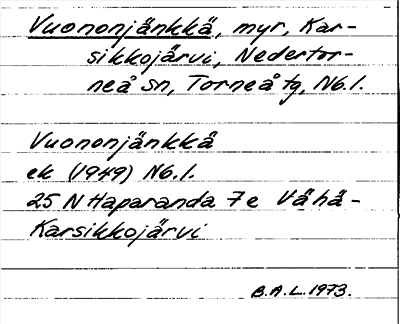 Vuononjänkkä, myr, Kar-
sikkojärvi, Nedertor-
neå sn, Torneå tg, Nb.l.
Vuononjänkkä
ek (1949) Nb.l.
25 N Haparanda 7e Vähä-
Karsikkojärvi
B.A.L. 1973.